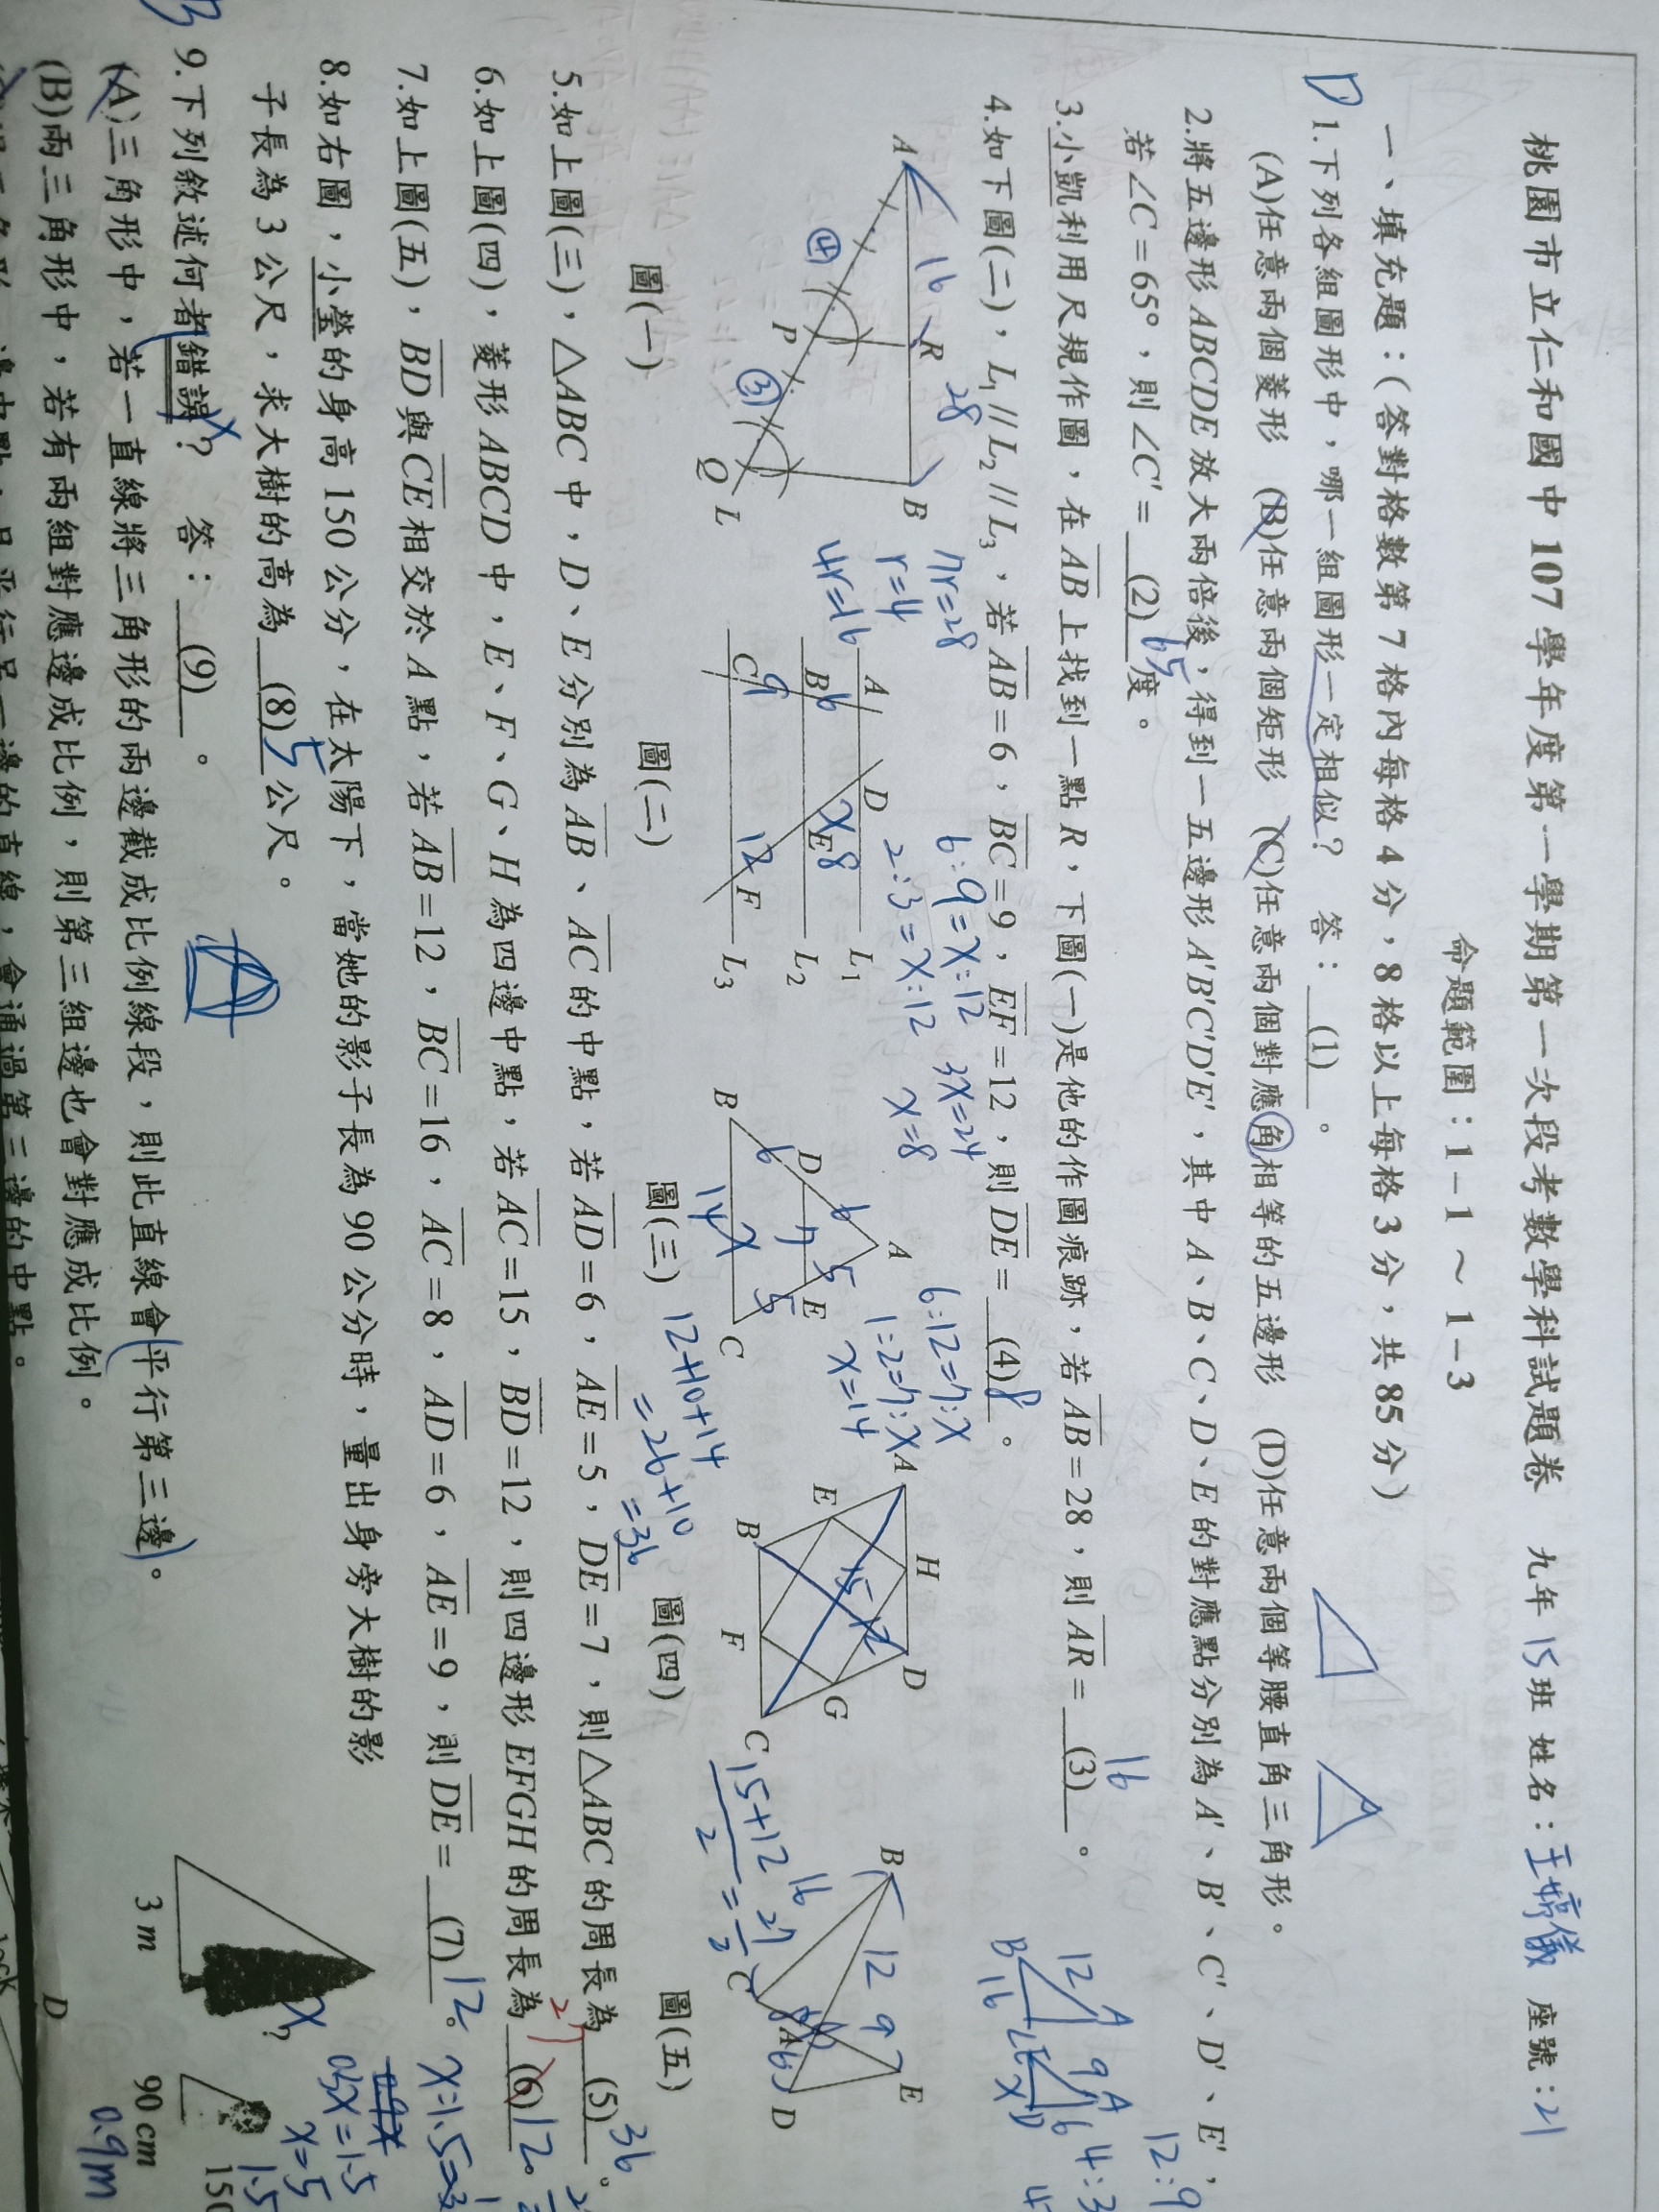 桃園市立仁和國中 107 學年度第一學期第一次段考數學科試題卷 九年 15 班 姓名：王 儀 座號：21
命題範圍：1－1 ～ 1－3
一、填充題：（答對格數第 7 格內每格 4 分，8 格以上每格 3 分，共 85 分）
D 1.下列各組圖形中，哪一組圖形一定相似？ 答： (1) 。
(A)任意兩個菱形 (B)任意兩個矩形 (C)任意兩個對應角相等的五邊形 (D)任意兩個等腰直角三角形。
2.將五邊形 ABCDE 放大兩倍後，得到一五邊形 A'B'C'D'E'，其中 A、B、C、D、E 的對應點分別為 A'、B'、C'、D'、E'，
若∠C＝65°，則∠C'＝ (2) 65 度。
3.小凱利用尺規作圖，在AB上找到一點 R，下圖(一)是他的作圖痕跡，若AB＝28，則AR＝ (3) 16 。
4.如下圖(二)，L₁ // L₂ // L₃，若AB＝6，BC＝9，EF＝12，則DE＝ (4) 8 。
A 16 R 28 B
④ P ③ Q L
7r=28
r=4
4r=16
A D L₁
B 6 x E 8 L₂
C 9 12 F L₃
6:9=x:12
2:3=x:12
3x=24
x=8
A
6 5
D 7 E
6 5
B 14 x C
6:12=7:x
1:2=7:x
x=14
12+10+14
=26+10
=36
A H D
E 15 12 G
B F C
15+12
2
=
27
2
B 12 9 E
16 8 A
C 6 D
12 A 9 A 6
B 16 C E x D
12:9
4:3
圖(一) 圖(二) 圖(三) 圖(四) 圖(五)
5.如上圖(三)，△ABC 中，D、E 分別為AB、AC的中點，若AD＝6，AE＝5，DE＝7，則△ABC 的周長為 (5) 36 。
6.如上圖(四)，菱形 ABCD 中，E、F、G、H 為四邊中點，若AC＝15，BD＝12，則四邊形 EFGH 的周長為 (6) 27
7.如上圖(五)，BD與CE相交於 A 點，若AB＝12，BC＝16，AC＝8，AD＝6，AE＝9，則DE＝ (7) 12 。
8.如右圖，小瑩的身高 150 公分，在太陽下，當她的影子長為 90 公分時，量出身旁大樹的影
子長為 3 公尺，求大樹的高為 (8) 5 公尺。
x:1.5=3
0.3x=1.5
x=5
x ?
3 m
90 cm
0.9m
1.5
B 9.下列敘述何者錯誤？ 答： (9) 。
(A)三角形中，若一直線將三角形的兩邊截成比例線段，則此直線會平行第三邊。
(B)兩三角形中，若有兩組對應邊成比例，則第三組邊也會對應成比例。
D